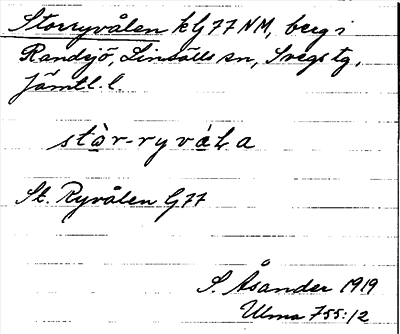 Storryvålen k Gj 77 NM, berg i
Randsjö, Linsälls sn, Svegs tg,
Jämtl. l.
stòr-ryváLa
St. Ryvålen G 77
S. Åsander 1919
Ulma 755:12